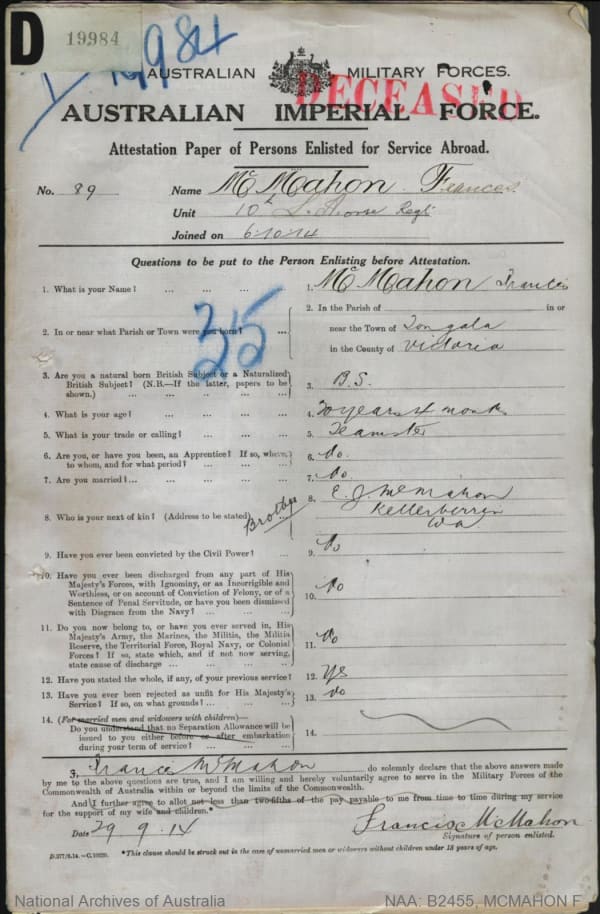 D 19984
19984
AUSTRALIAN MILITARY FORCES.
DECEASED
AUSTRALIAN IMPERIAL FORCE.
Attestation Paper of Persons Enlisted for Service Abroad.
No. 89 Name McMahon Francis
Unit 10th L. Horse Regt
Joined on 6-10-14
Questions to be put to the Person Enlisting before Attestation.
1. What is your Name? ... ... ... 1. McMahon Francis
2. In or near what Parish or Town were you born? ... 2. In the Parish of in or
near the Town of Tongala
in the County of Victoria
35
3. Are you a natural born British Subject or a Naturalized
British Subject? (N.B.—If the latter, papers to be
shown.) ... ... ... ... 3. B.S.
4. What is your age? ... ... ... 4. years 4 months
5. What is your trade or calling? ... ... ... 5. Teamster
6. Are you, or have you been, an Apprentice? If so, where,
to whom, and for what period? ... ... 6. No.
7. Are you married? ... ... ... ... 7. No.
8. Who is your next of kin? (Address to be stated) Brother 8. E. J. McMahon
Kellerberrin
WA
9. Have you ever been convicted by the Civil Power? ... 9. No
10. Have you ever been discharged from any part of His
Majesty's Forces, with Ignominy, or as Incorrigible and
Worthless, or on account of Conviction of Felony, or of a
Sentence of Penal Servitude, or have you been dismissed
with Disgrace from the Navy? ... ... ... 10. No
11. Do you now belong to, or have you ever served in, His
Majesty's Army, the Marines, the Militia, the Militia
Reserve, the Territorial Force, Royal Navy, or Colonial
Forces? If so, state which, and if not now serving,
state cause of discharge ... ... ... 11. No
12. Have you stated the whole, if any, of your previous service? 12. Yes
13. Have you ever been rejected as unfit for His Majesty's
Service? If so, on what grounds? ... ... 13. No
14. (For married men and widowers with children)—
Do you understand that no Separation Allowance will be
issued to you either before or after embarkation
during your term of service? ... ... 14.
I, Francis McMahon do solemnly declare that the above answers made
by me to the above questions are true, and I am willing and hereby voluntarily agree to serve in the Military Forces of the
Commonwealth of Australia within or beyond the limits of the Commonwealth.
And I further agree to allot not less than two-fifths of the pay payable to me from time to time during my service
for the support of my wife and children.*
Date 29 9. 14 Francis McMahon
Signature of person enlisted.
*This clause should be struck out in the case of unmarried men or widowers without children under 18 years of age.
National Archives of Australia NAA: B2455, MCMAHON F